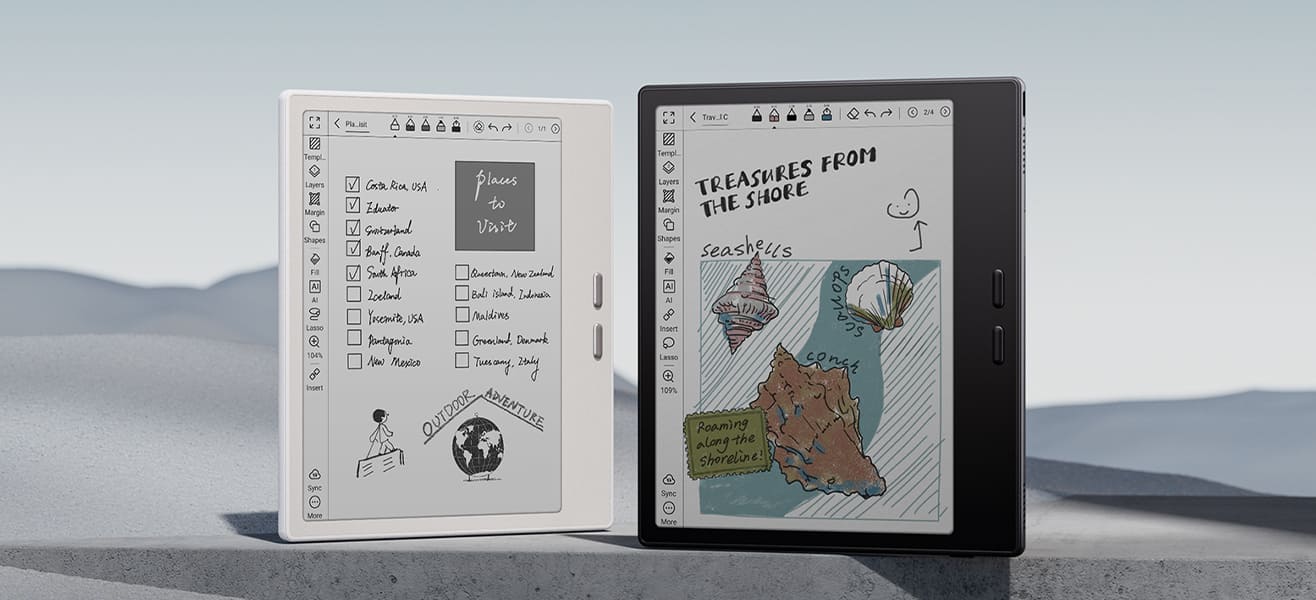 Pla...isit
1/1
Templ...
Layers
Margin
Shapes
Fill
AI
AI
Lasso
104%
Insert
Sync
More
Places
to
Visit
Costa Rica, USA
Switzerland
Banff, Canada
South Africa
Iceland
Yosemite, USA
Pantagonia
New Mexico
New Zealand
Bali island, Indonesia
Maldives
Greenland, Denmark
Tuescany, Italy
OUTDOOR ADVENTURE
Trav...l C
2/4
Templ...
Layers
Margin
Shapes
Fill
AI
AI
Insert
Lasso
109%
Sync
More
TREASURES FROM
THE SHORE
seashells
scallops
conch
Roaming
along the
shoreline!